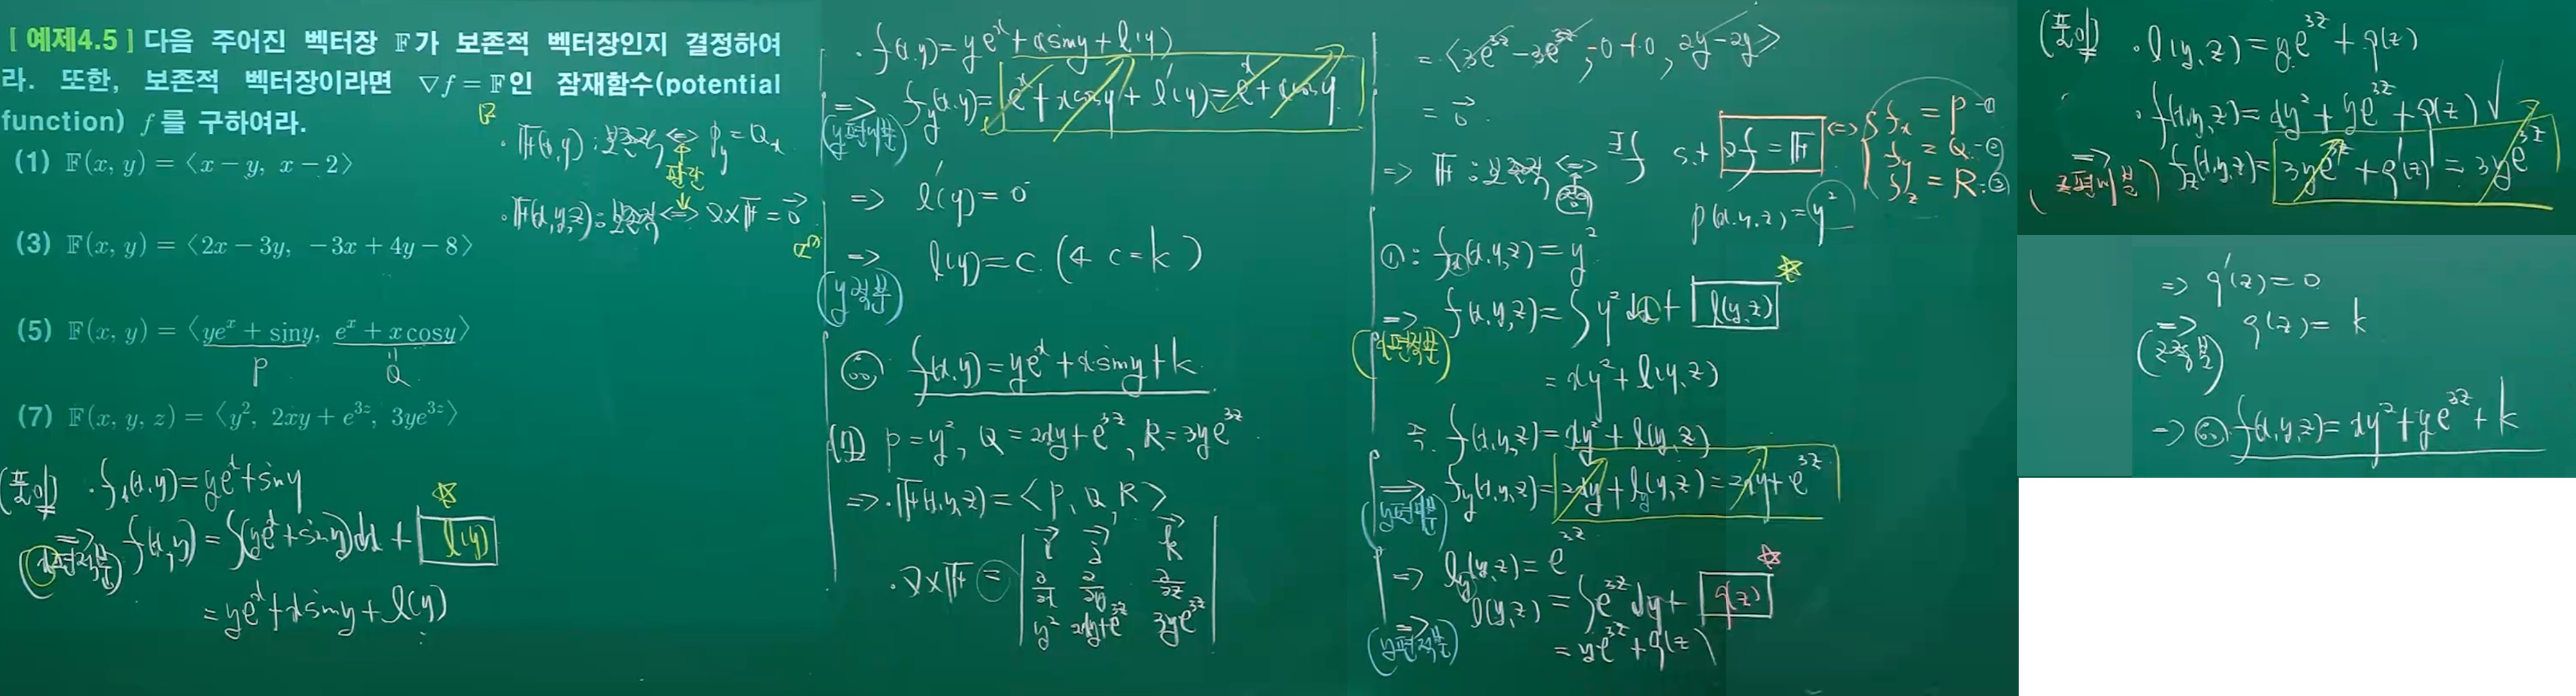 [ 예제4.5 ] 다음 주어진 벡터장 𝔽가 보존적 벡터장인지 결정하여
라. 또한, 보존적 벡터장이라면 ∇f = 𝔽인 잠재함수(potential
function) f 를 구하여라.
(1) 𝔽(x, y) = ⟨x − y, x − 2⟩
(3) 𝔽(x, y) = ⟨2x − 3y, −3x + 4y − 8⟩
(5) 𝔽(x, y) = ⟨ye^x + siny, e^x + x cosy⟩
P
Q
(7) 𝔽(x, y, z) = ⟨y², 2xy + e^{3z}, 3ye^{3z}⟩
· 𝔽(x,y) : 보존적 ⟺ P_y = Q_x
판단
· 𝔽(x,y,z) : 보존적 ⟺ ∇×𝔽 = 0⃗
(풀이) · f_x(x,y) = ye^x + sin y
⇒ f(x,y) = ∫(ye^x + sin y)dx + l(y)
(x편적분)
= ye^x + x sin y + l(y)
· f(x,y) = ye^x + x sin y + l(y)
⇒ f_y(x,y) = e^x + x cos y + l'(y) = e^x + x cos y
(y편미분)
⇒ l'(y) = 0
⇒ l(y) = c. (← c = k)
(y적분)
∴ f(x,y) = ye^x + x sin y + k
(7) P = y², Q = 2xy + e^{3z}, R = 3ye^{3z}
⇒ · 𝔽(x,y,z) = ⟨P, Q, R⟩
· ∇×𝔽 = | i⃗ j⃗ k⃗ |
| ∂/∂x ∂/∂y ∂/∂z |
| y² 2xy+e^{3z} 3ye^{3z} |
= ⟨3e^{3z} − 3e^{3z}, −0 + 0, 2y − 2y⟩
= 0⃗
⇒ 𝔽 : 보존적 ⟺ ∃f s.t ∇f = 𝔽 ⟺ { f_x = P -①
f_y = Q -②
f_z = R -③
P(x,y,z) = y²
① : f_x(x,y,z) = y²
⇒ f(x,y,z) = ∫ y² dx + l(y,z)
(x편적분)
= xy² + l(y,z)
f(x,y,z) = xy² + l(y,z)
⇒ f_y(x,y,z) = 2xy + l_y(y,z) = 2xy + e^{3z}
(y편미분)
⇒ l_y(y,z) = e^{3z}
⇒ l(y,z) = ∫ e^{3z} dy + q(z)
(y편적분)
= ye^{3z} + q(z)
(풀이) · l(y,z) = ye^{3z} + q(z)
· f(x,y,z) = xy² + ye^{3z} + q(z) √
⇒ f_z(x,y,z) = 3ye^{3z} + q'(z) = 3ye^{3z}
(z편미분)
⇒ q'(z) = 0
⇒ q(z) = k
(z적분)
⇒ ∴ f(x,y,z) = xy² + ye^{3z} + k